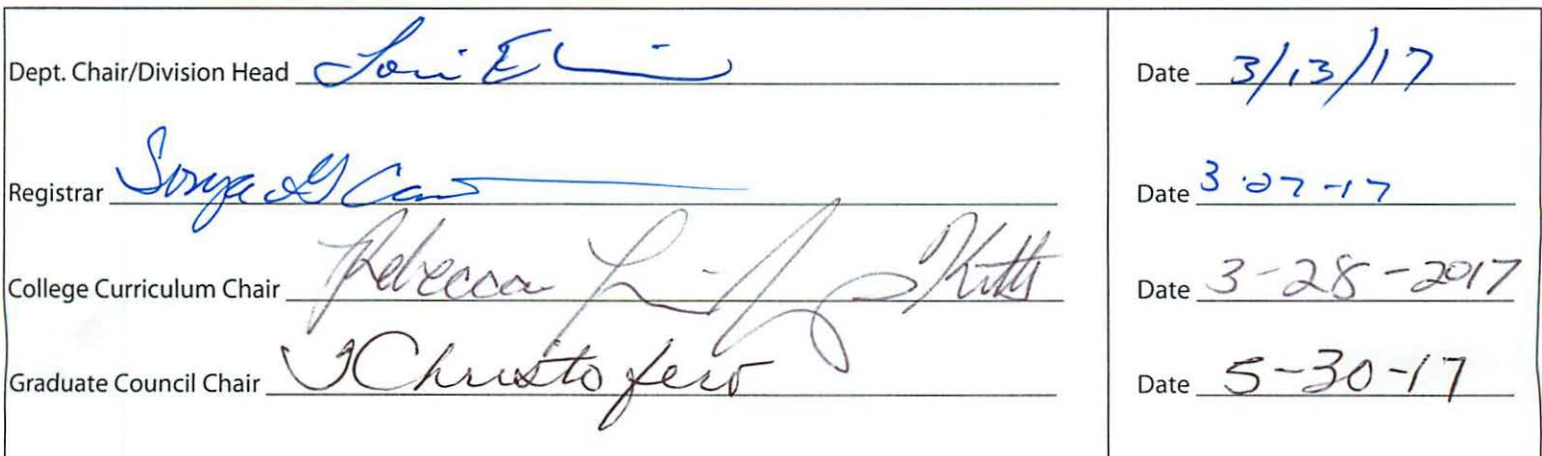 Dept. Chair/Division Head Lori E Date 3/13/17
Registrar Sonya G Date 3-27-17
College Curriculum Chair Rebecca Kitts Date 3-28-2017
Graduate Council Chair J Christofero Date 5-30-17